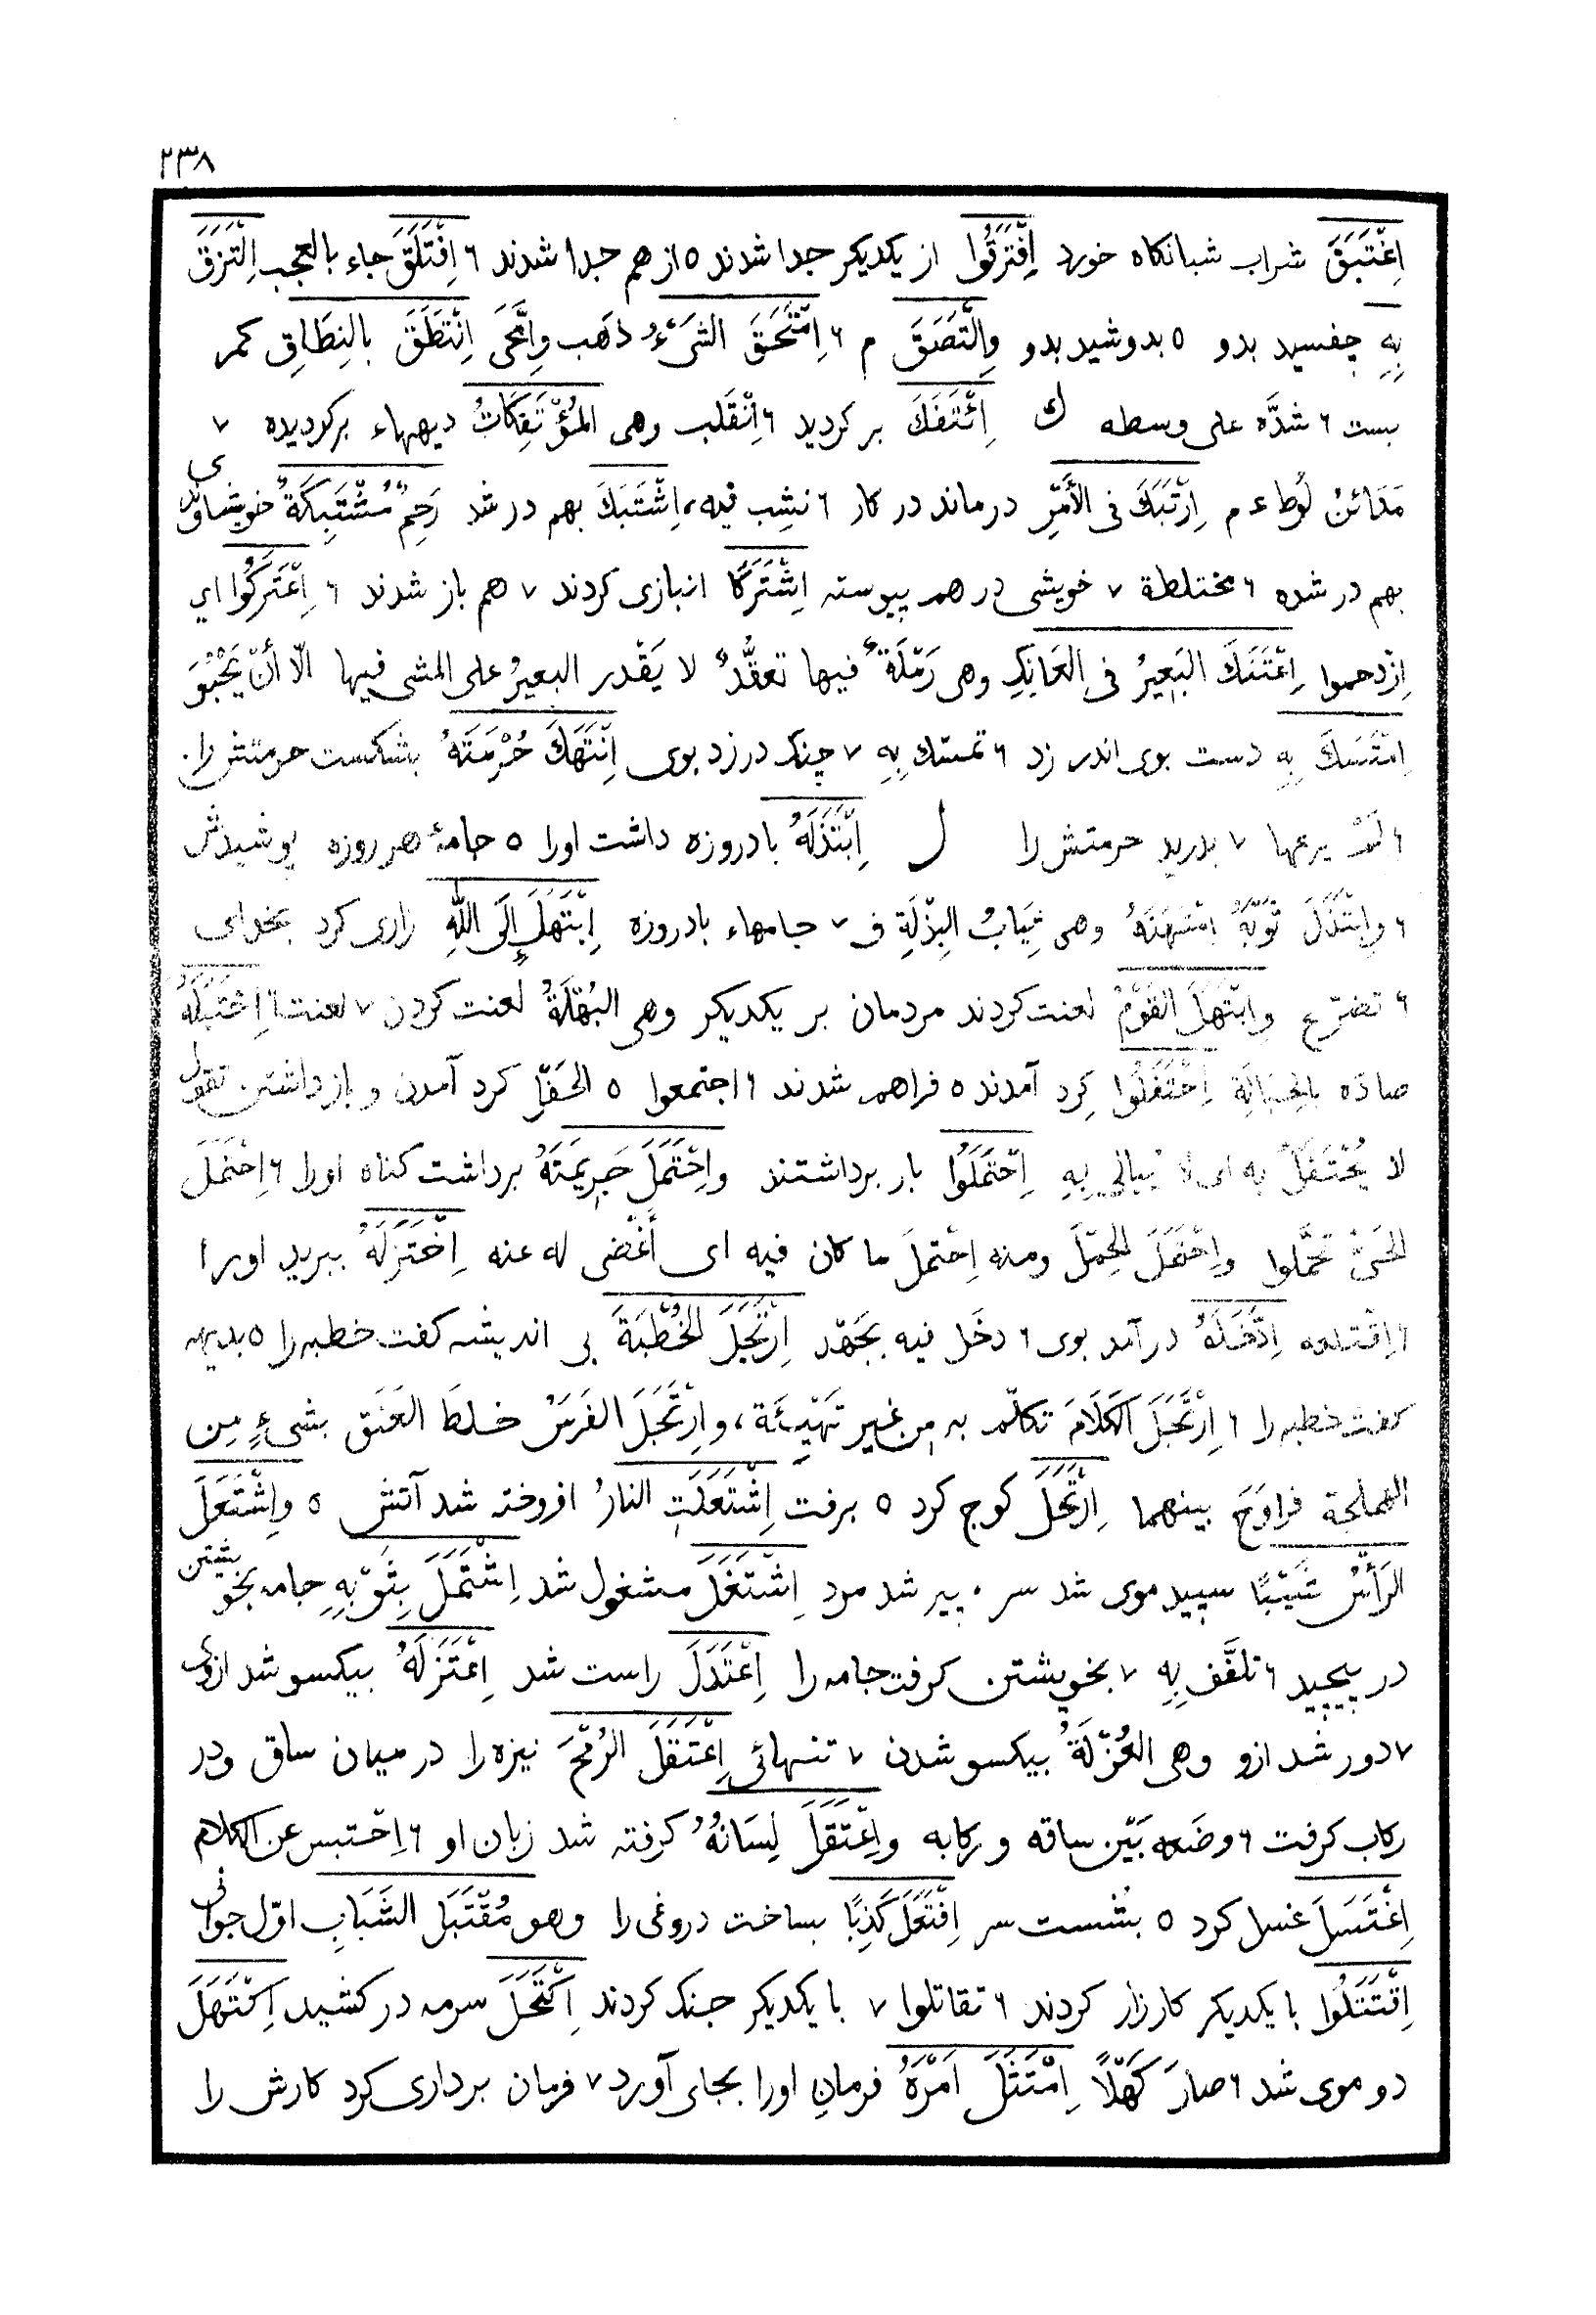 ۲۳۸
اِغْتَبَقَ شراب شبانکاه خورد اِفْتَرَقُوا از یکدیکر جدا شدند ۵ از هم جدا شدند ۶ اِفْتَلَقَ جاء بالعجب اِلْتَزَقَ
بِهِ چفسید بدو ۵ بدوشید بدو وِالْتَصَقَ م ۶ اِمْتَحَقَ الشَیءُ ذَهَب وامَّحَی اِنْتَطَقَ بالنِطَاقِ کمر
بست ۶ شدَّه علی وسطه ك اِئْتَفَكَ بر کردید ۶ اِنْقَلب وهی المُؤْتَفِکَاتُ دیههاء برکردیده ۷
مَدَائنُ لُوط ء م اِرْتَبَكَ فی الأَمْرِ درماند در کار ۶ نشِب فیه، اِشْتَبَكَ بهم در شد رَحِمٌ مُشْتَبِکَةٌ خویشاوندی
بهم در شده ۶ مختلطة ۷ خویشی در هم پیوسته اِشْتَرَکَا انبازی کردند ۷ هم باز شدند ۶ اِعْتَرَکُوا ای
اِزْدحموا اِعْتَنَكَ البَعِیرُ فی العَانِكِ وهی رَمْلَةٌ فیها تعقُّدٌ لا یَقْدر البعیرُ علی المشی فیها الّا أنْ یَحْبُوَ
اِمْتَسَكَ بِهِ دست بوی اندر زد ۶ تمسّك بِهِ ۷ چنك در زد بوی اِنْتَهَكَ حُرْمَتَهُ بشکست حرمتش را
۶ لَمْ یرعها ۷ بدرید حرمتش را ل اِبْتَذَلَهُ بادروزه داشت اورا ۵ جامهٔ هر روزه پوشیدش
۶ وابْتَذَلَ ثَوْبَهُ امْتَهَنَهُ وهی ثِیَابُ البِذْلَةِ ف ۷ جامهاء بادروزه اِبْتَهَلَ إلَی اللّٰهِ زاری کرد بخدای
۶ تضرّع وابْتَهَلَ القَوْمُ لعنت کردند مردمان بر یکدیکر وهی البُهْلَةُ لعنت کردن ۷ لعنت اِحْتَبَلَهُ
صادَه بالحِبَالَةِ اِحْتَفَلُوا کرد آمدند ۵ فراهم شدند ۶ اجتمعوا ۵ الحَفْلِ کرد آمدن و بازداشتن تقول
لا یُحْتَفَلُ بِه ای لا یُبالی بِهِ اِحْتَمَلُوا بار برداشتند واِحْتَمَلَ جَرِیمَتَهُ برداشت کناه اورا ۶ اِحْتَمَلَ
الحَیُّ تَحَمَّلوا واِحْتَمَلَ الحِمْلَ ومنه اِحْتملَ ما کان فیه ای أَغْضی له عنه اِخْتَزَلَهُ ببرید اورا
۶ اِقْتطعه اِدَّخَلَهُ در آمد بوی ۶ دخَل فیه بجَهْد اِرْتَجَلَ الخُطْبَةَ بی اندیشه کفت خطبه را ۵ بدیهه
کفت خطبه را ۶ اِرْتَجَلَ الکَلَامَ تکلّم به من غیر تَهْیِئَة، واِرْتَجَلَ الفَرَسُ خلطَ العَنَق بشیءٍ مِن
الهملجة فراوَحَ بینهما اِرْتَحَلَ کوج کرد ۵ برفت اِشْتَعَلَتِ النارُ افروخته شد آتش ۵ واِشْتَعَلَ
الرَأْسُ شَیْبًا سپید موی شد سر ۰ پیر شد مرد اِشْتَغَلَ مشغول شد اِشْتَمَلَ بِثَوْبِهِ جامه بخویشتن
در پیچید ۶ تلفَّف بِهِ ۷ بخویشتن کرفت جامه را اِعْتَدَلَ راست شد اِعْتَزَلَهُ بیکسو شد ازوی
۷ دور شد ازو وهی العُزْلَةُ بیکسو شدن ۷ تنهائی اِعْتَقَلَ الرُمْحَ نیزه را در میان ساق ودر
رکاب کرفت ۶ وضَعه بَیْن ساقه و رکابه واِعْتَقَلَ لِسَانُهُ کرفته شد زبان او ۶ اِحْتبس عن الکلام
اِغْتَسَلَ غسل کرد ۵ بشست سر اِفْتَعَلَ کَذِبًا بساخت دروغی را وهو مُقْتَبَل الشَبَابِ اوّل جوانی
اِقْتَتَلُوا با یکدیکر کارزار کردند ۶ تقاتلوا ۷ با یکدیکر جنك کردند اِکْتَحَلَ سرمه در کشید اِکْتَهَلَ
دو موی شد ۶ صارَ کَهْلًا اِمْتَثَلَ اَمْرَهُ فرمانِ اورا بجای آورد ۷ فرمان برداری کرد کارش را